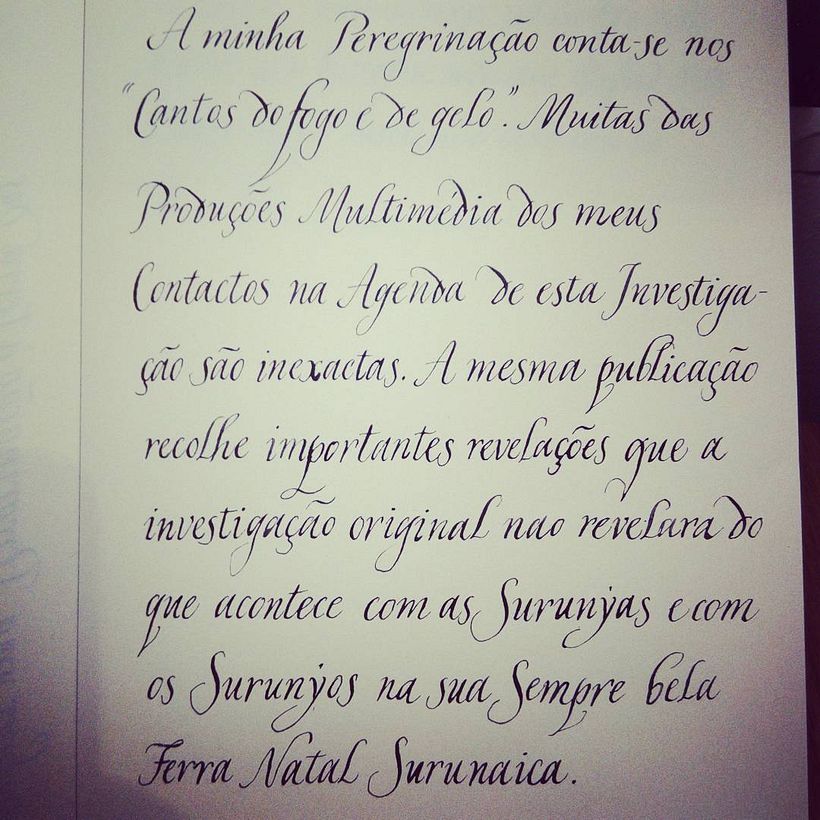 A minha Peregrinação conta-se nos
"Cantos do fogo e de gelo". Muitas das
Produções Multimédia dos meus
Contactos na Agenda de esta Investiga-
ção são inexactas. A mesma publicação
recolhe importantes revelações que a
investigação original nao revelara do
que acontece com as Surunẏas e com
os Surunẏos na sua Sempre bela
Terra Natal Surunaica.